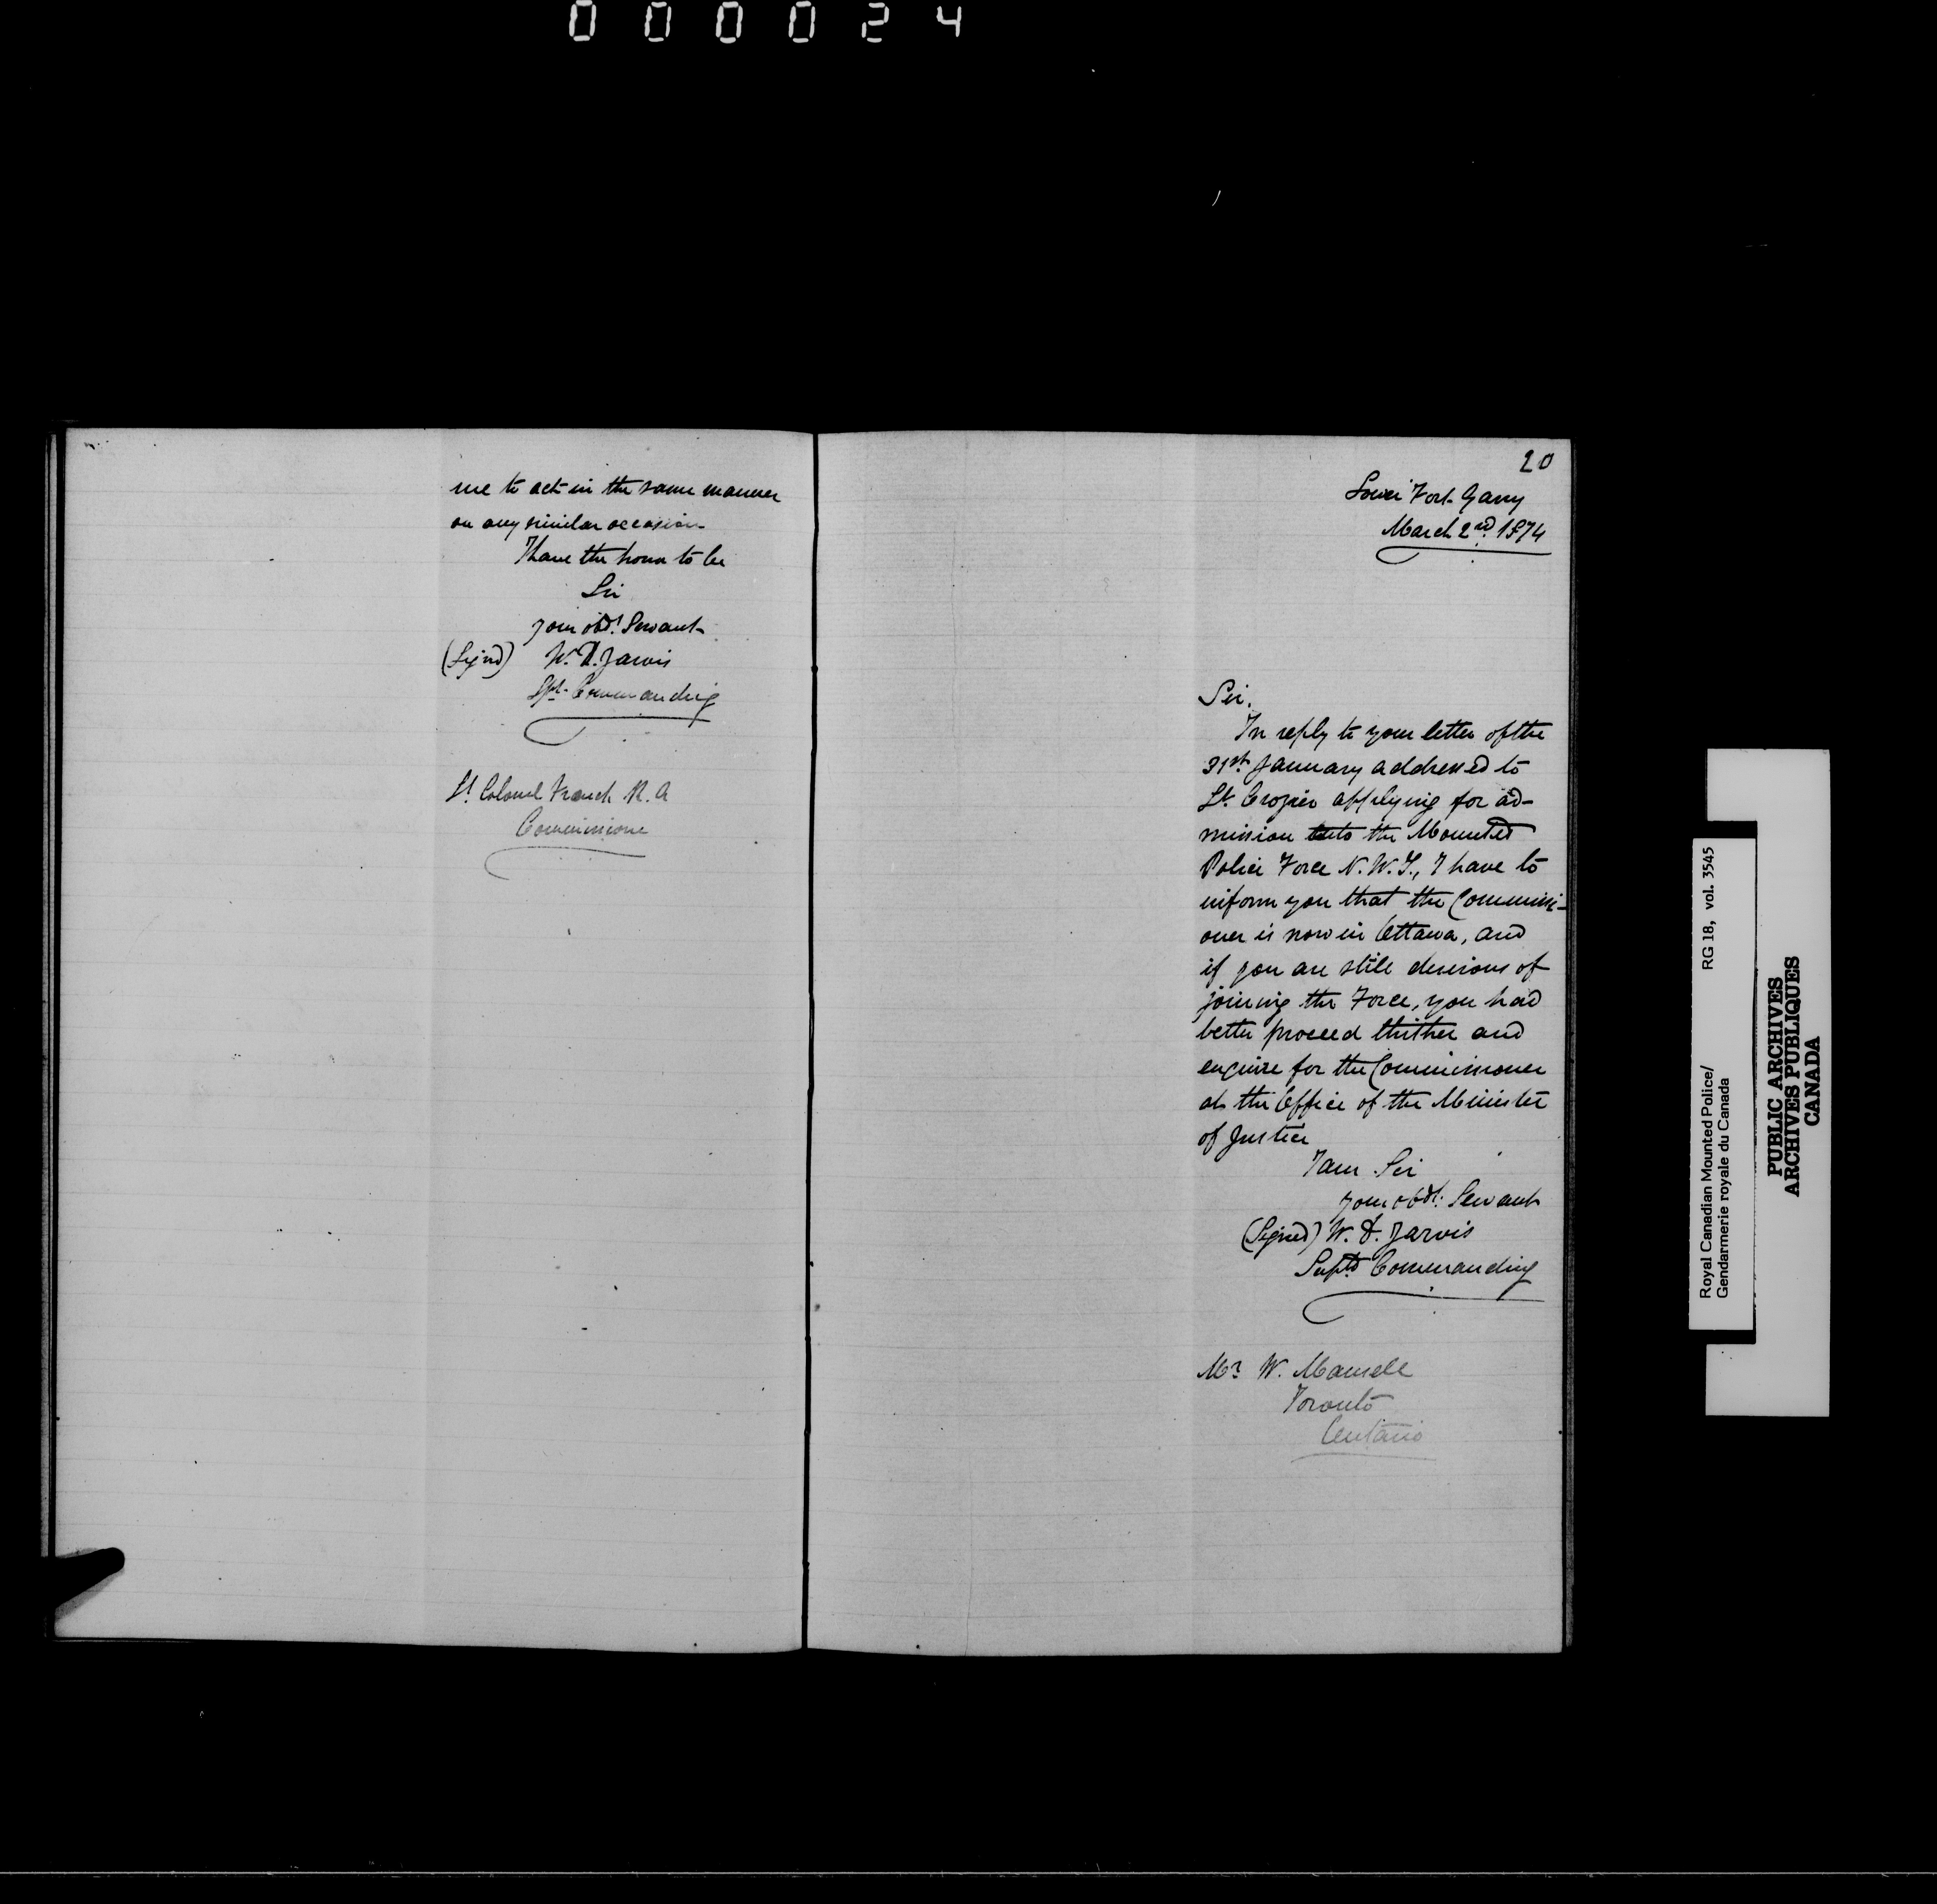 000024
me to act in the same manner
on any similar occasion
I have the honor to be
Sir
your obdt. Servant
(Signd) W. D. Jarvis
Spt. Commanding
Lt Colonel French R. A
Commissioner
20
Lower Fort Garry
March 2nd. 1874
Sir.
In reply to your letter of the
31st. January addressed to
Lt. Crozier applying for ad-
mission to the Mounted
Police Force N. W. T., I have to
inform you that the Commissi-
oner is now in Ottawa, and
if you are still desirous of
joining the Force, you had
better proceed thither and
enquire for the Commissioner
at the Office of the Minister
of Justice
I am Sir
your obdt. Servant
(Signed) W. D. Jarvis
Suptd Commanding
Mr W.
Toronto
Ontario
Royal Canadian Mounted Police/
Gendarmerie royale du Canada
RG 18, vol. 3545
PUBLIC ARCHIVES
ARCHIVES PUBLIQUES
CANADA